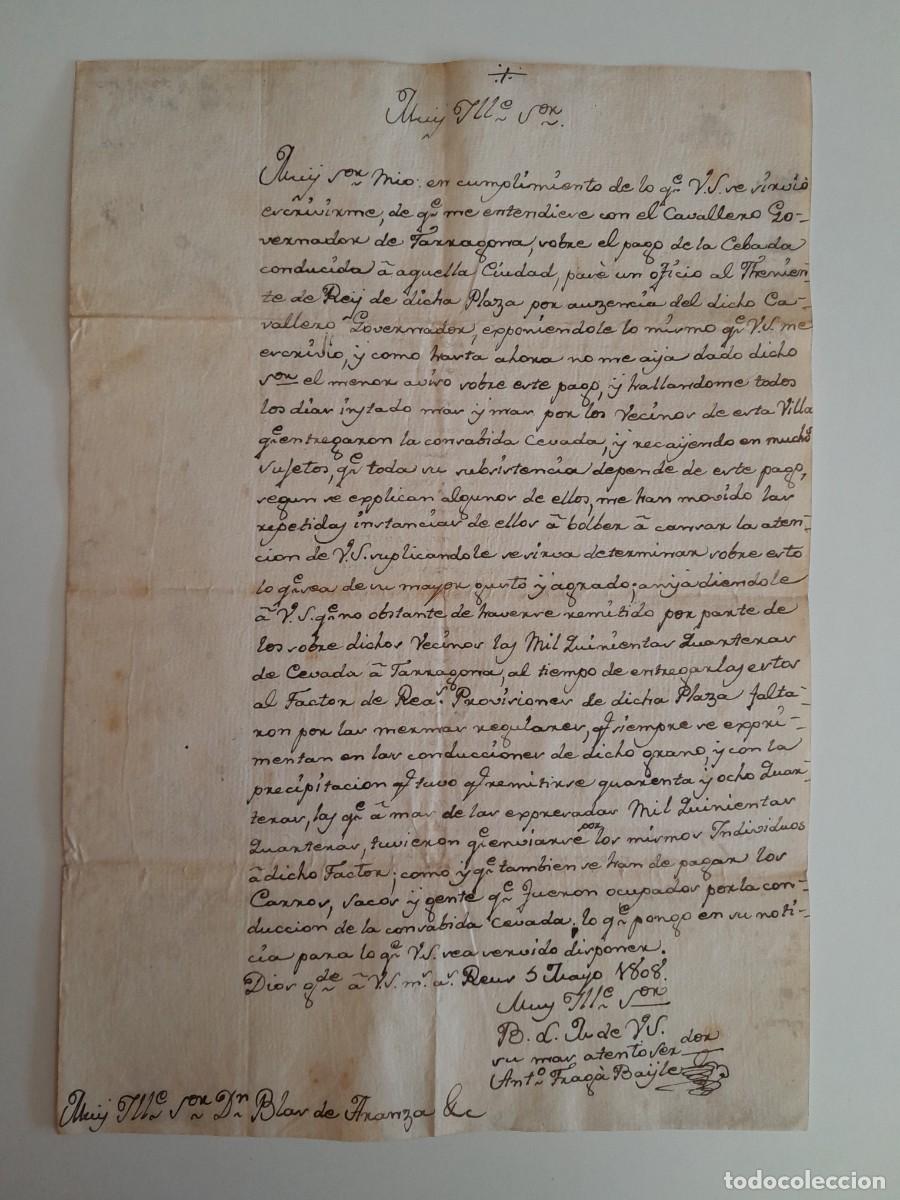 Muy Ille. Sor.
Muy Sor Mio: en cumplimiento de lo qe. V.S. se sirvio
escrivirme, de qe. me entendiese con el Cavallero Go-
vernador de Tarragona, sobre el pago de la Cebada
conducida â aquella Ciudad, pasè un oficio al Thenien-
te de Rey de dicha Plaza por auzencia del dicho Ca-
vallero Governador, exponiendole lo mismo qe. V.S. me
escrivio, y como hasta ahora no me aya dado dicho
Sor el menor aviso sobre este pago, y hallandome todos
los dias instado mas y mas por los Vecinos de esta Villa
qe. entregaron la consabida Cevada, y recayendo en muchos
sujetos, qe. toda su subsistencia depende de este pago,
segun se explican algunos de ellos, me han movido las
repetidas instancias de ellos â bolber â cansar la aten-
cion de V.S. suplicandole se sirva determinar sobre esto
lo qe. sea de su mayor gusto y agrado; anyadiendole
â V.S. qe. no obstante de haverse remitido por parte de
los sobre dichos Vecinos las Mil Quinientas Quarteras
de Cevada â Tarragona, al tiempo de entregarlas estos
al Factor de Reas. Provisiones de dicha Plaza falta-
ron por las mermas regulares, q siempre se expri-
mentan en las conducciones de dicho grano, y con la
precipitacion q tuvo q remitirse quarenta y ocho Quar-
teras, las qe. â mas de las expresadas Mil Quinientas
Quarteras, tuvieron qe. enviarse por los mismos Individuos
â dicho Factor; como y qe. tambien se han de pagar los
Carros, sacos y gente qe. fueron ocupados por la con-
duccion de la consabida Cevada; lo qe. pongo en su noti-
cia para lo qe. V.S. sea servido disponer.
Dios gde. â V.S. ms. as. Reus 5 Mayo 1808.
Muy Ille. Sor
B. L. M. de V.S.
su mas atento serdor
Anto. Fragà Bayle
Muy Ille. Sor. Dn. Blas de Aranza &c
todocoleccion